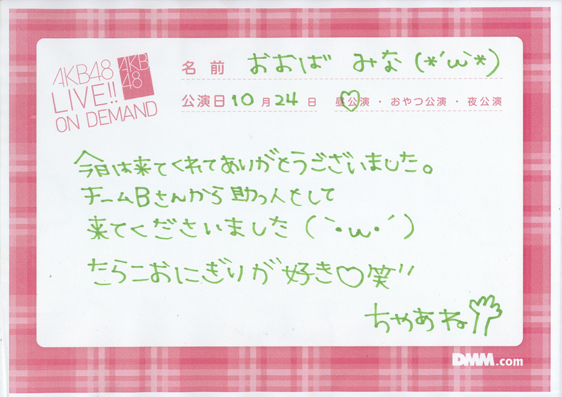 AKB48
LIVE!!
ON DEMAND
AKB
48
名前 おおば みな(*´ω`*)
公演日 10月24日 昼公演・おやつ公演・夜公演
今日は来てくれてありがとうございました。
チームBさんから助っ人として
来てくださいました(`・ω・´)
たらこおにぎりが好き♡笑"
ちゃあね
DMM.com